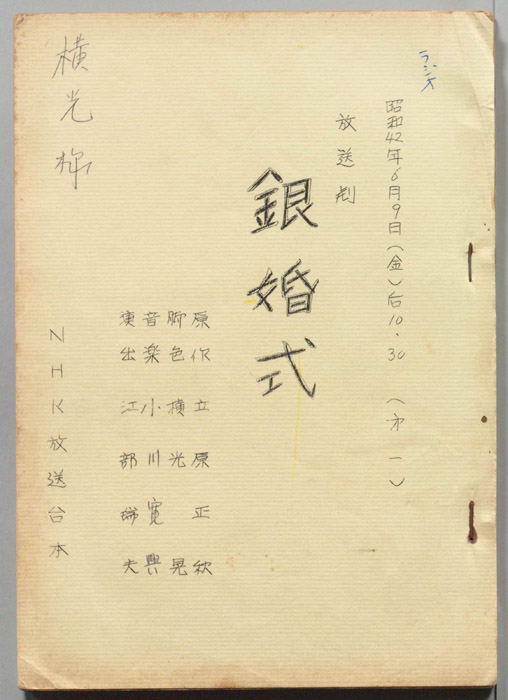 ラジオ
昭和42年6月9日(金)后10.30 (才一)
放送劇
銀婚式
原作 立原正秋
脚色 横光晃
音楽 小川寛興
演出 江部瑞夫
横光様
NHK放送台本